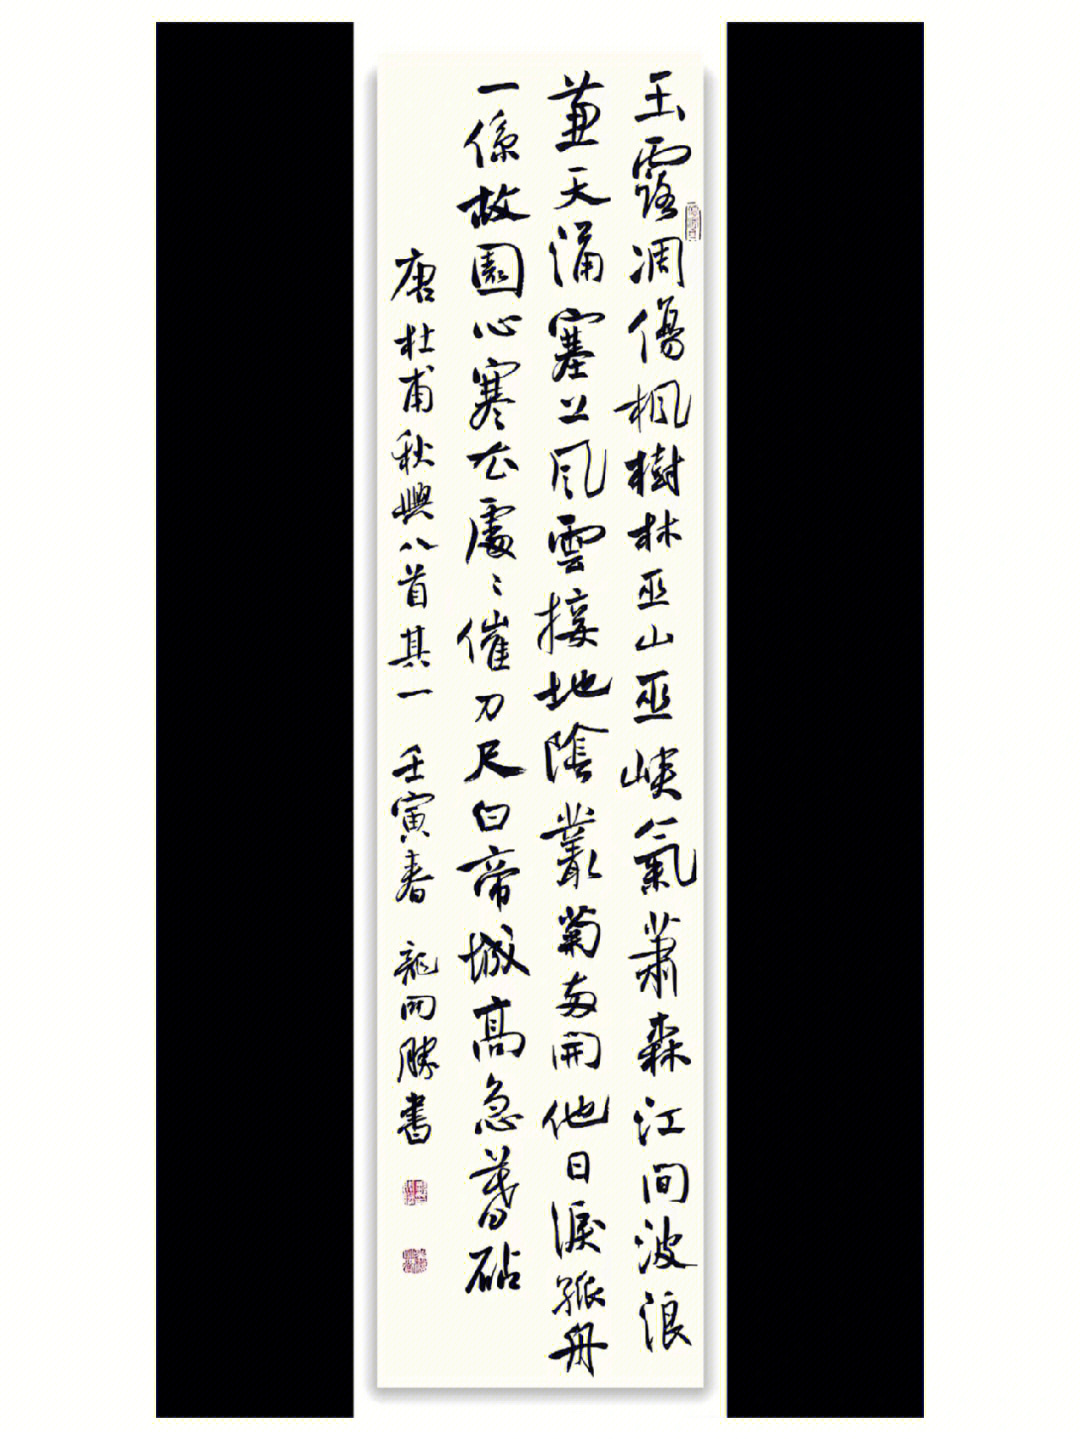 玉露凋傷楓樹林巫山巫峽氣蕭森江間波浪
兼天涌塞上風雲接地陰叢菊兩開他日淚孤舟
一係故園心寒衣處〻催刀尺白帝城高急暮砧
唐杜甫秋興八首其一 壬寅春 龍開勝書